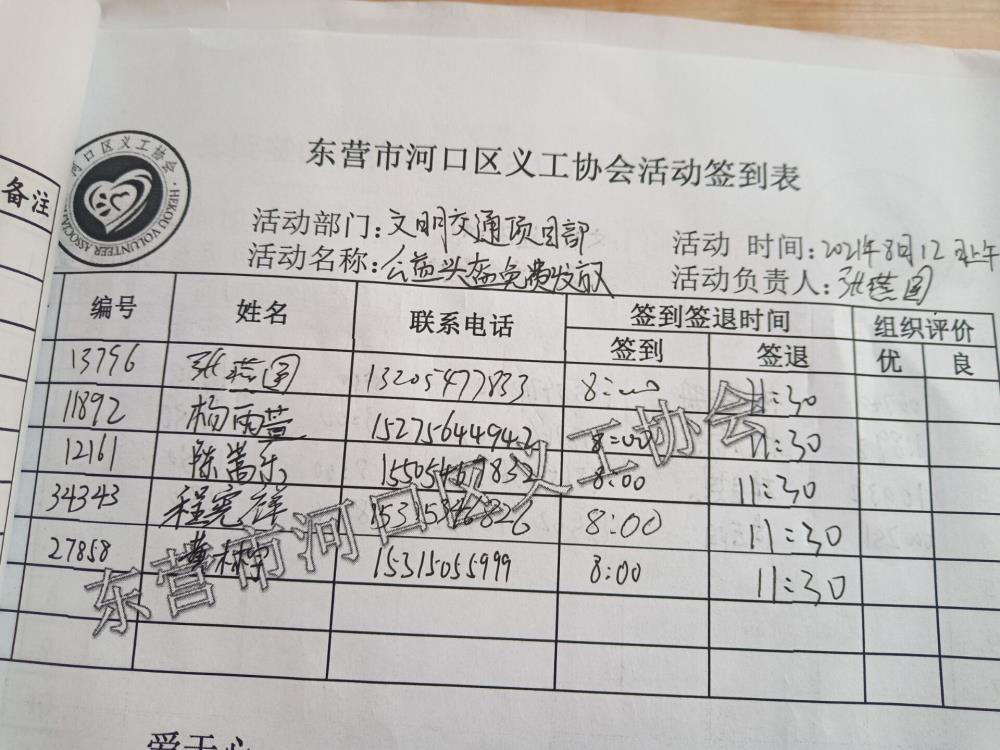 备注
河口区义工协会
HEKOU VOLUNTEER ASSOCIA
东营市河口区义工协会活动签到表
活动部门:文明交通项目部
活动 时间:2021年8月12日上午
活动名称:公益头盔免费发放
活动负责人:张燕国
编号 姓名 联系电话 签到签退时间 组织评价
签到 签退 优 良
13796 张燕国 13205477833 8:00 11:30
11892 杨雨萱 15275644942 8:00 11:30
12161 陈嵩乐 8:00 11:30
34343 程宪祥 8:00 11:30
27858 15315055999 8:00 11:30
东营市河口区义工协会
爱于心